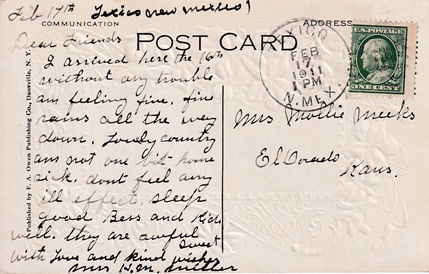 Feb 17th Texico New Mexico
COMMUNICATION
ADDRESS
POST CARD
Dear Friends
I arrived here the 16th
without any trouble
am feeling fine, fine
rains all the way
down. Lovely country
am not one bit home
sick. dont feel any
ill effect. sleep
good Bess and Kids
well. they are awful
sweet
with Love and kind wishes
Mrs H.M. Miller
TEXICO
FEB
17
1911
PM
N. MEX.
U.S. POSTAGE
ONE CENT
Mrs Mollie Meeks
El Dorado
Kans.
Published by F. A. Owen Publishing Co., Dansville, N. Y.